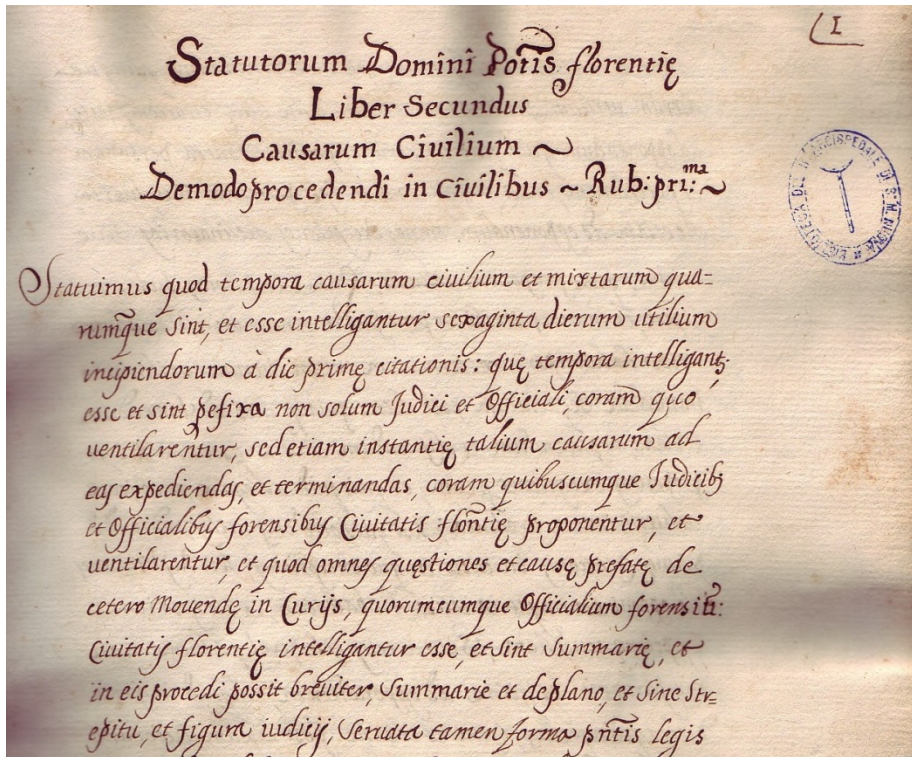 I
Statutorum Domini Potis̃ florentię
Liber Secundus
Causarum Ciuilium ~
Demodo procedendi in Ciuilibus ~ Rub: pri:ma ~
Statuimus quod tempora causarum ciuilium et mixtarum qua-
rumq̃ue sint, et esse intelligantur sexaginta dierum utilium
incipiendorum à die primę citationis: quę tempora intelligant;
esse et sint p̃efixa non solum Judici et Officiali, coram quo
uentilarentur, sed etiam instantię talium causarum ad
eas expediendas, et terminandas, coram quibuscumque Judicib;
et Officialibus forensibus Ciuitatis floñtię proponentur, et
uentilarentur, et quod omnes quęstiones et causę prefatę de
cetero Mouendę in Curijs, quorumcumque Officialium forensiũ:
Ciuitatis florentię intelligantur esse, et sint Summarię, et
in eis procedi possit breuiter, Summarie et de plano, et Sine Str=
epitu, et figura iudicij, Seruata tamen forma pñtis legis
ARCISPEDALE DI S. M. NUOVA